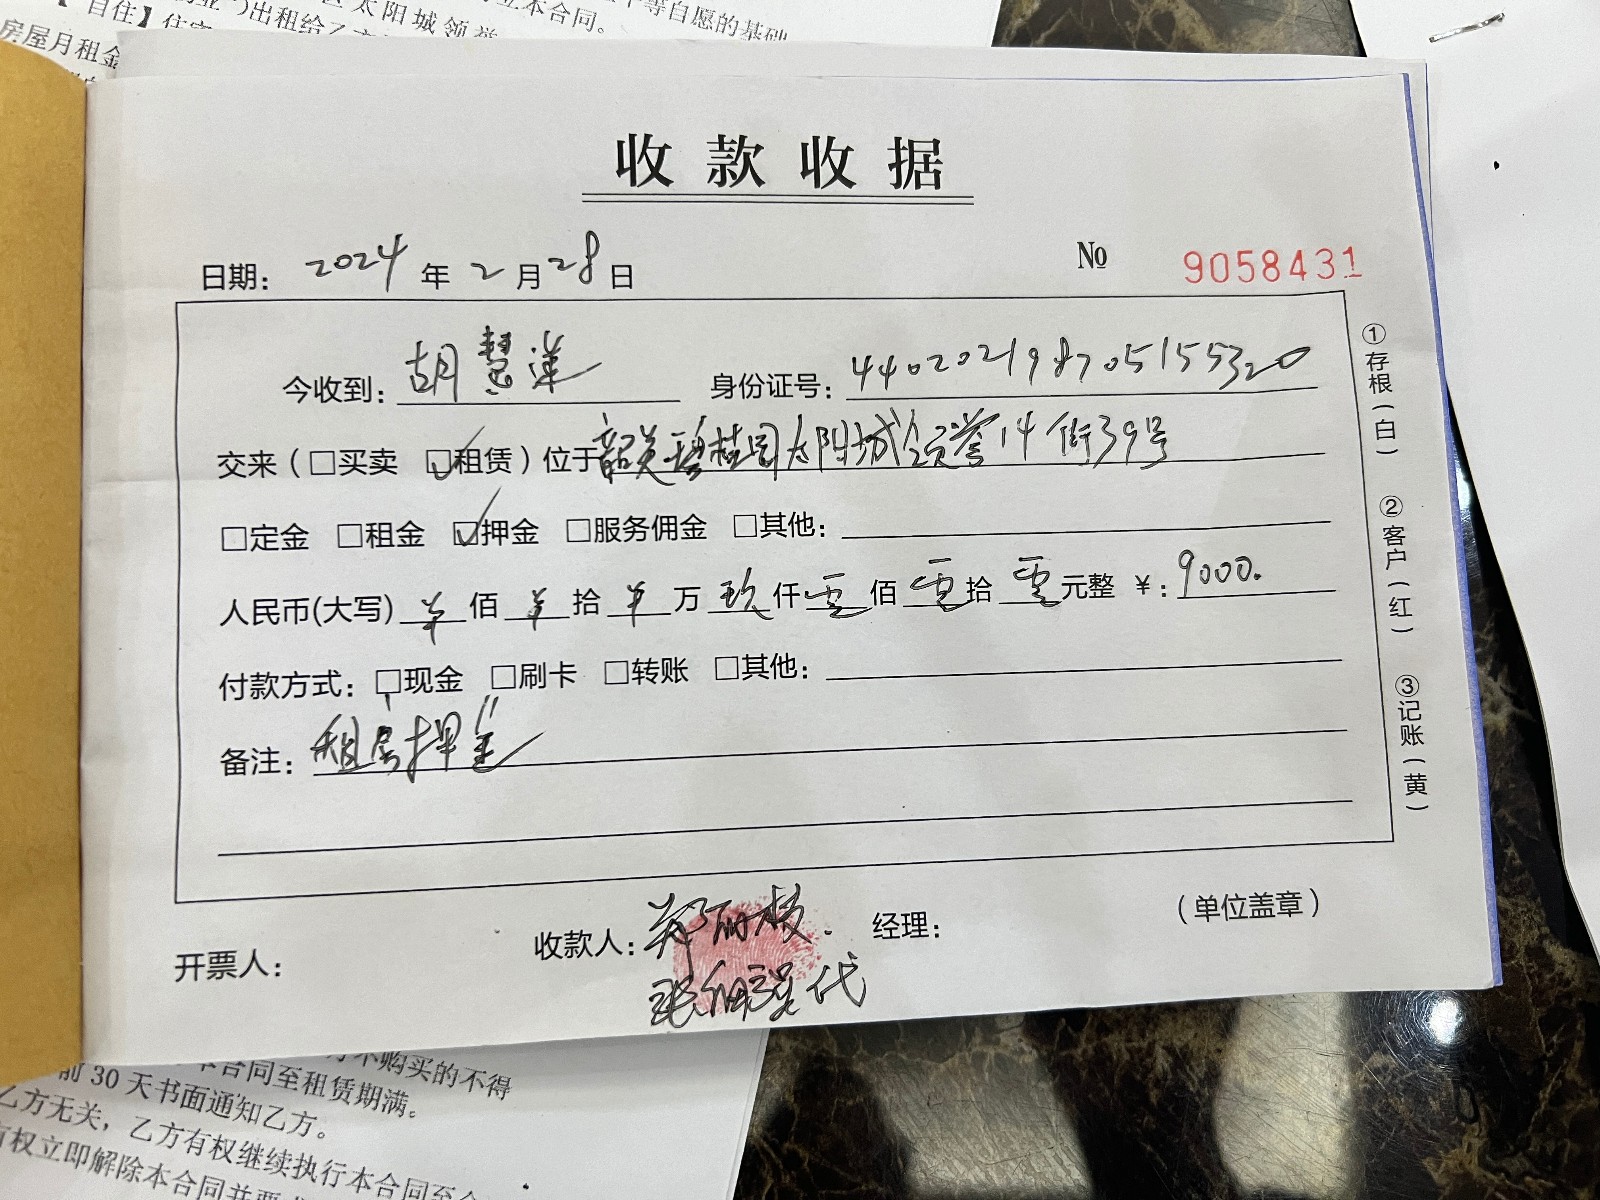 太阳城领誉
等自愿的基础
立本合同。
自住】
出租给乙方
房屋月租金
收款收据
日期： 2024 年 2 月 28 日 № 9058431
今收到：胡慧莲 身份证号：440202198705155320
交来（□买卖 ☑租赁）位于韶关碧桂园太阳城领誉14街39号
□定金 □租金 ☑押金 □服务佣金 □其他：
人民币(大写) 羊 佰 羊 拾 羊 万 玖 仟 零 佰 零 拾 零 元整 ￥：9000.
付款方式：□现金 □刷卡 □转账 □其他：
备注：租房押金
①存根（白）
②客户（红）
③记账（黄）
开票人： 收款人：郑丽枝. 经理： （单位盖章）
代
不购买的不得
本合同至租赁期满。
前30天书面通知乙方。
乙方无关，乙方有权继续执行本合同至
有权立即解除本合同并要